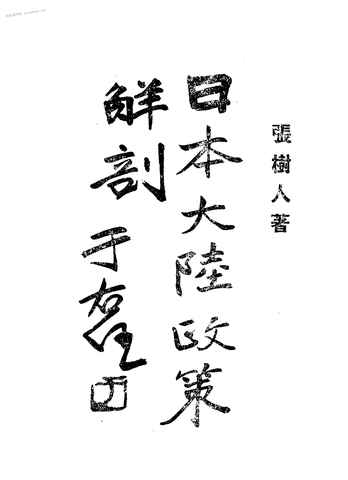 張樹人著
日本大陸政策
觧剖
于右任